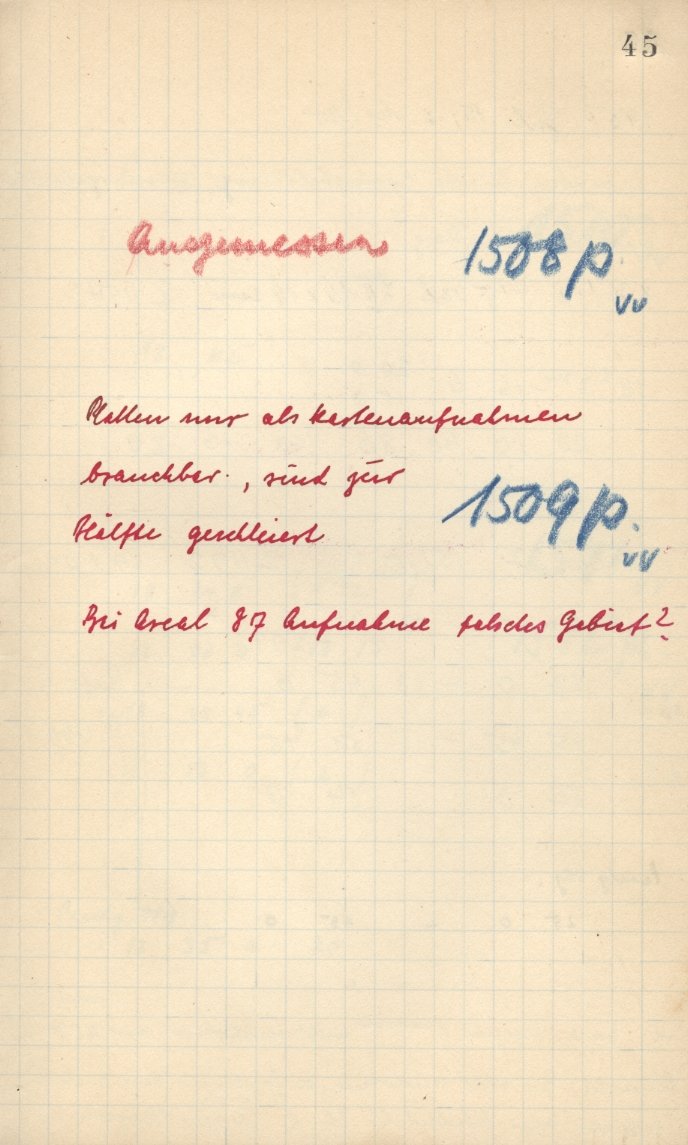 45
Ausgemessen 1508 p.
vv
Platten nur als Kartenaufnahmen
brauchbar, sind zur
Hälfte geschleiert 1509 p.
vv
Bei Areal 87 Aufnahme falsches Gebiet?